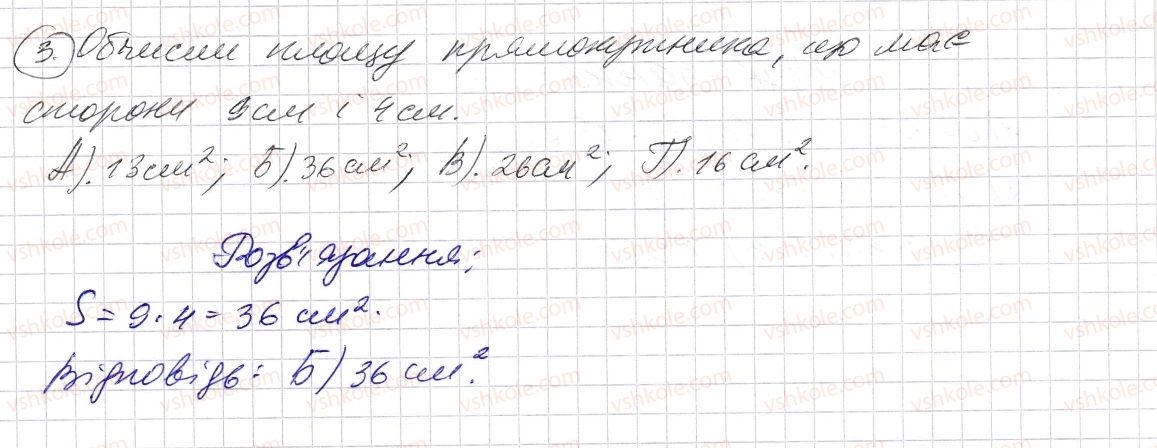 3. Обчисли площу прямокутника, що має
сторони 9см і 4см.
А). 13см²; Б). 36см²; В). 26см²; Г). 16см².
Розв'язання:
S = 9·4 = 36 см².
Відповідь: Б) 36 см².